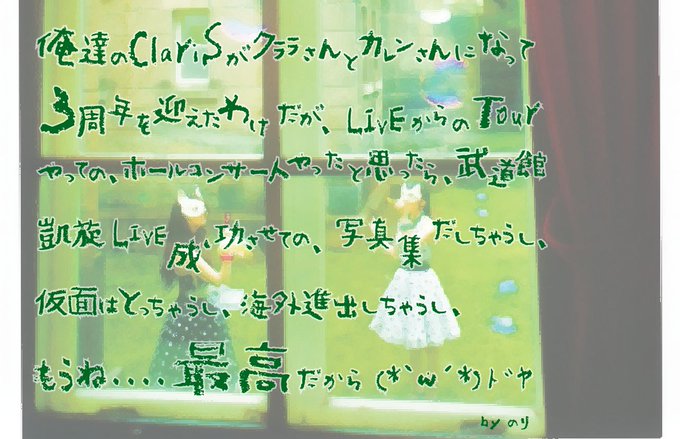 俺達のClariSがクララさんとカレンさんになって
3周年を迎えたわけだが、LIVEからのTour
やっての、ホールコンサートやったと思ったら、武道館
凱旋LIVE成功させての、写真集だしちゃうし、
仮面はとっちゃうし、海外進出しちゃうし、
もうね....最高だから (*´ω`*)ドヤ
by のり